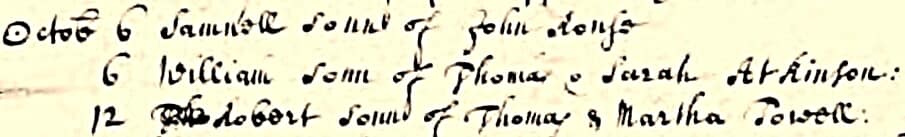 Octob 6 Samuell sonne of John Rouse
6 William sonn of Thomas & Sarah Atkinson:
12 Robert sonne of Thomas & Martha Powell: